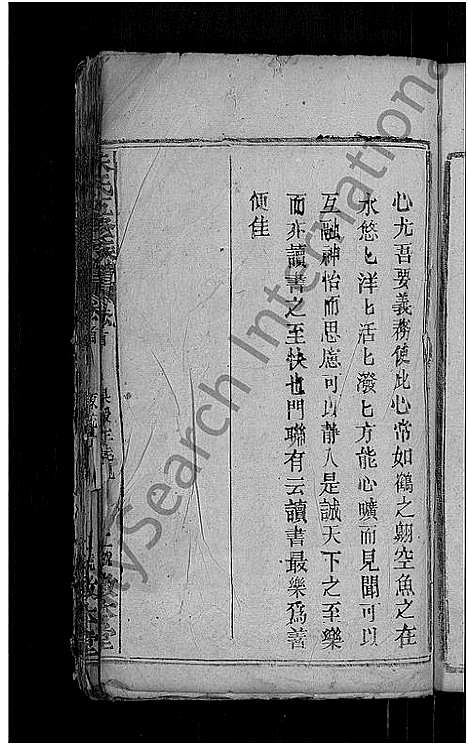 心尤吾要義務使此心常如鶴之翺空魚之在
水悠匕洋匕活匕潑匕方能心曠而見聞可以
互融神怡而思慮可以靜入是誠天下之至樂
而亦讀書之至快也門聯有云讀書最樂為善
便佳